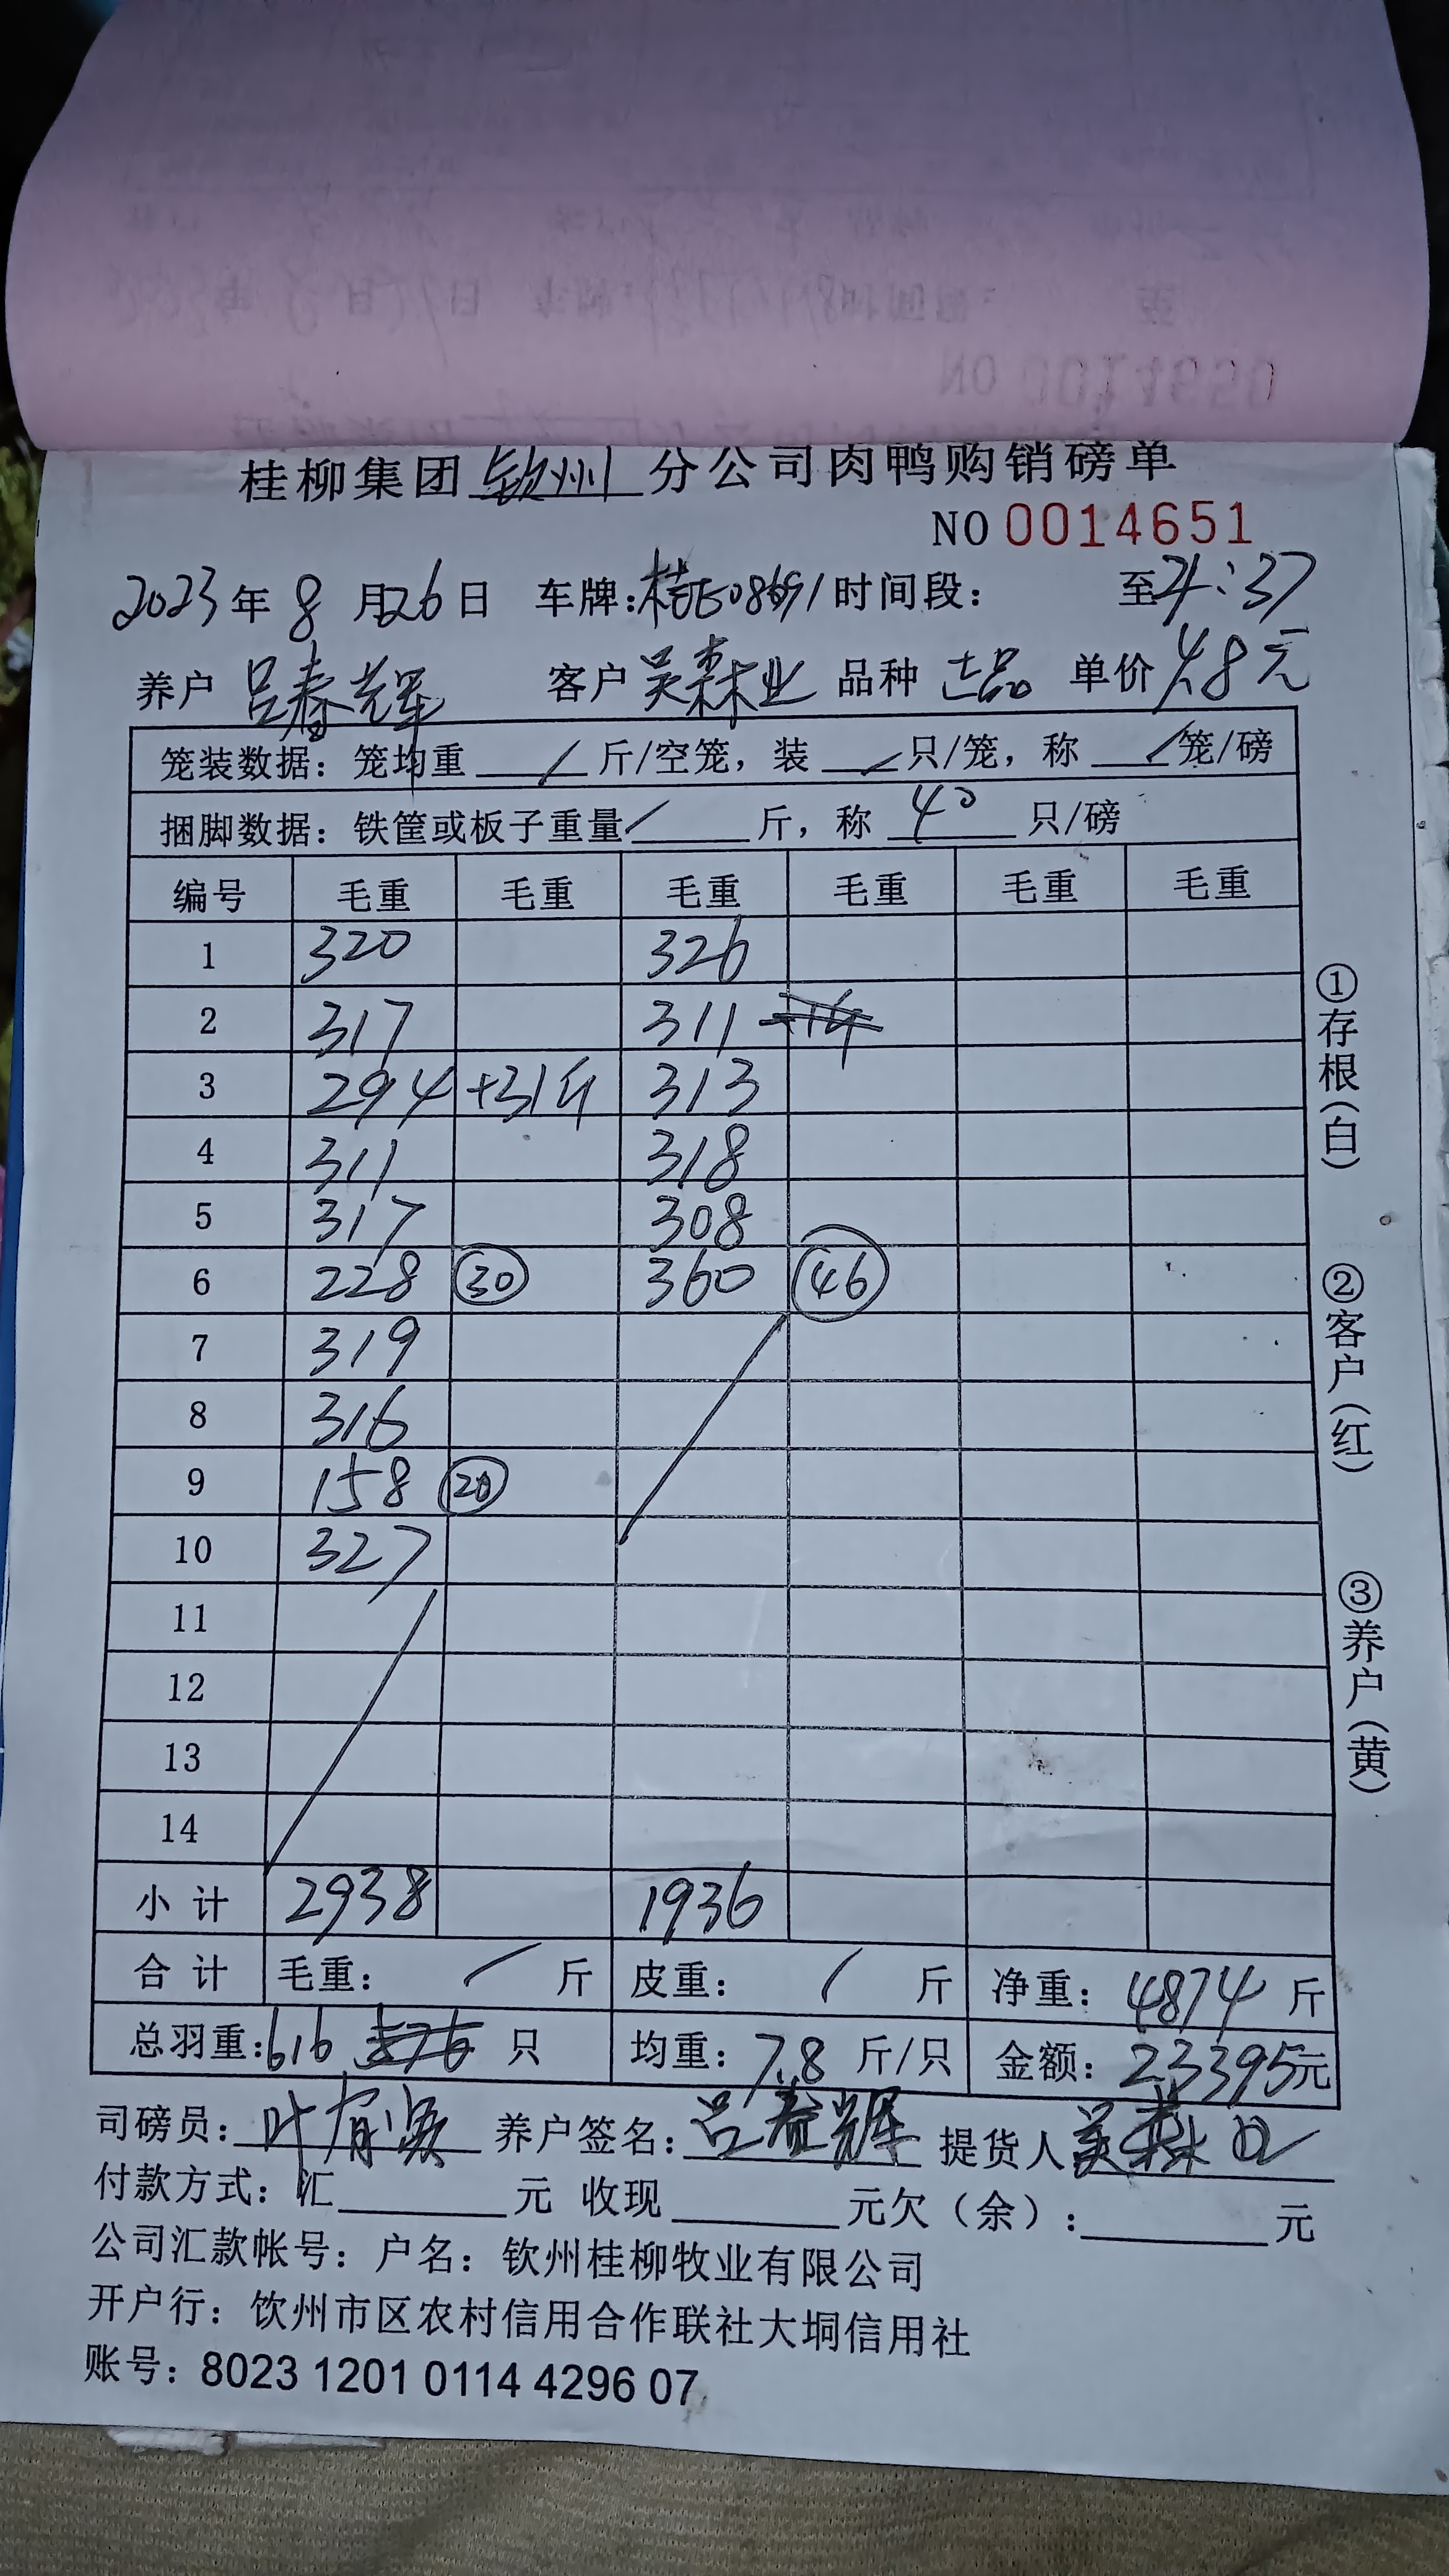 NO 0014650
桂柳集团钦州分公司肉鸭购销磅单
NO 0014651
2023年8月26日 车牌: 时间段: 至21:37
养户 吕春辉 客户 吴森业 品种 正品 单价 4.8元
笼装数据: 笼均重 / 斤/空笼, 装 / 只/笼, 称 / 笼/磅
捆脚数据: 铁筐或板子重量 / 斤, 称 40 只/磅
编号 毛重 毛重 毛重 毛重 毛重 毛重
1 320 326
2 317 311
3 294 +31斤 313
4 311 318
5 317 308
6 228 30 360 46
7 319
8 316
9 158 20
10 327
11
12
13
14
小计 2938 1936
合计 毛重: / 斤 皮重: / 斤 净重: 4874 斤
总羽重: 616 576 只 均重: 7.8 斤/只 金额: 23395元
司磅员: 养户签名: 吕春辉 提货人 吴森业
付款方式: 汇 元 收现 元欠(余): 元
公司汇款帐号: 户名: 钦州桂柳牧业有限公司
开户行: 钦州市区农村信用合作联社大垌信用社
账号: 8023 1201 0114 4296 07
①存根(白)
②客户(红)
③养户(黄)